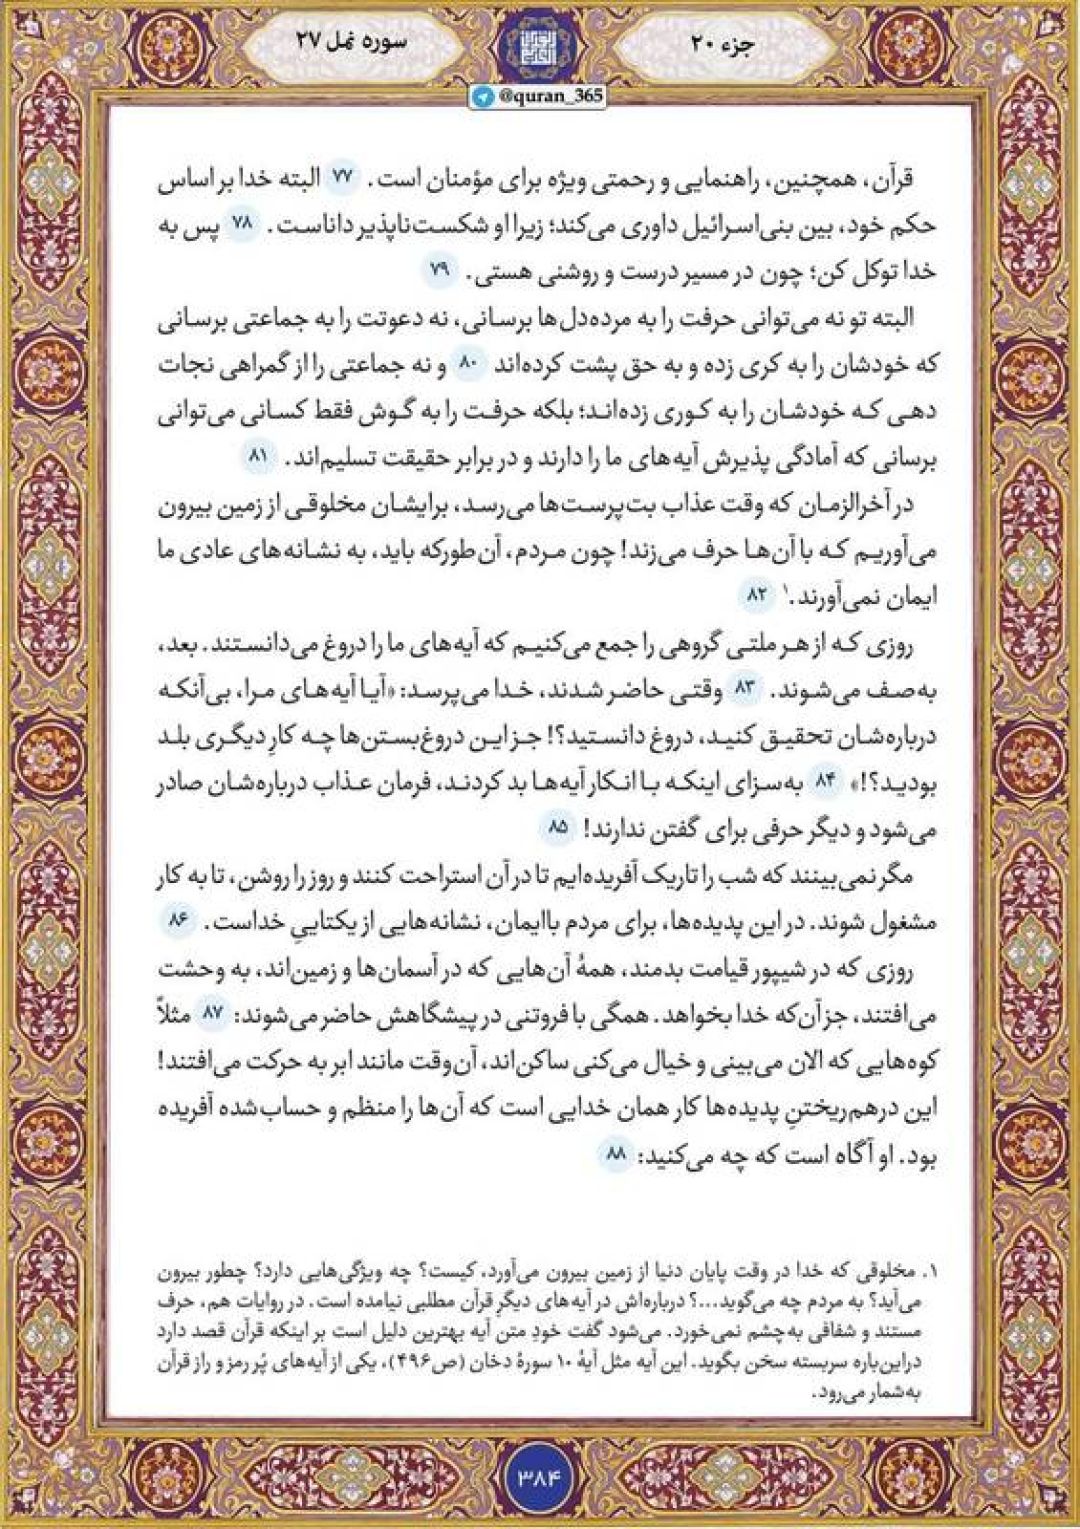 جزء ۲۰
سوره نمل ۲۷
@quran_365
قرآن، همچنین، راهنمایی و رحمتی ویژه برای مؤمنان است. ۷۷ البته خدا بر اساس
حکم خود، بین بنی‌اسرائیل داوری می‌کند؛ زیرا او شکست‌ناپذیر داناست. ۷۸ پس به
خدا توکل کن؛ چون در مسیر درست و روشنی هستی. ۷۹
البته تو نه می‌توانی حرفت را به مرده‌دل‌ها برسانی، نه دعوتت را به جماعتی برسانی
که خودشان را به کری زده و به حق پشت کرده‌اند ۸۰ و نه جماعتی را از گمراهی نجات
دهی که خودشان را به کوری زده‌اند؛ بلکه حرفت را به گوش فقط کسانی می‌توانی
برسانی که آمادگی پذیرش آیه‌های ما را دارند و در برابر حقیقت تسلیم‌اند. ۸۱
در آخرالزمان که وقت عذاب بت‌پرست‌ها می‌رسد، برایشان مخلوقی از زمین بیرون
می‌آوریم که با آن‌ها حرف می‌زند! چون مردم، آن‌طورکه باید، به نشانه‌های عادی ما
ایمان نمی‌آورند.۱ ۸۲
روزی که از هر ملتی گروهی را جمع می‌کنیم که آیه‌های ما را دروغ می‌دانستند. بعد،
به‌صف می‌شوند. ۸۳ وقتی حاضر شدند، خدا می‌پرسد: «آیا آیه‌های مرا، بی‌آنکه
درباره‌شان تحقیق کنید، دروغ دانستید؟! جز این دروغ‌بستن‌ها چه کارِ دیگری بلد
بودید؟!» ۸۴ به‌سزای اینکه با انکار آیه‌ها بد کردند، فرمان عذاب درباره‌شان صادر
می‌شود و دیگر حرفی برای گفتن ندارند! ۸۵
مگر نمی‌بینند که شب را تاریک آفریده‌ایم تا در آن استراحت کنند و روز را روشن، تا به کار
مشغول شوند. در این پدیده‌ها، برای مردم باایمان، نشانه‌هایی از یکتاییِ خداست. ۸۶
روزی که در شیپور قیامت بدمند، همهٔ آن‌هایی که در آسمان‌ها و زمین‌اند، به وحشت
می‌افتند، جز آن‌که خدا بخواهد. همگی با فروتنی در پیشگاهش حاضر می‌شوند: ۸۷ مثلاً
کوه‌هایی که الان می‌بینی و خیال می‌کنی ساکن‌اند، آن‌وقت مانند ابر به حرکت می‌افتند!
این درهم‌ریختنِ پدیده‌ها کار همان خدایی است که آن‌ها را منظم و حساب‌شده آفریده
بود. او آگاه است که چه می‌کنید: ۸۸
۱. مخلوقی که خدا در وقت پایان دنیا از زمین بیرون می‌آورد، کیست؟ چه ویژگی‌هایی دارد؟ چطور بیرون
می‌آید؟ به مردم چه می‌گوید...؟ درباره‌اش در آیه‌های دیگرِ قرآن مطلبی نیامده است. در روایات هم، حرف
مستند و شفافی به‌چشم نمی‌خورد. می‌شود گفت خودِ متن آیه بهترین دلیل است بر اینکه قرآن قصد دارد
دراین‌باره سربسته سخن بگوید. این آیه مثل آیهٔ ۱۰ سورهٔ دخان (ص۴۹۶)، یکی از آیه‌های پُر رمز و راز قرآن
به‌شمار می‌رود.
۳۸۴